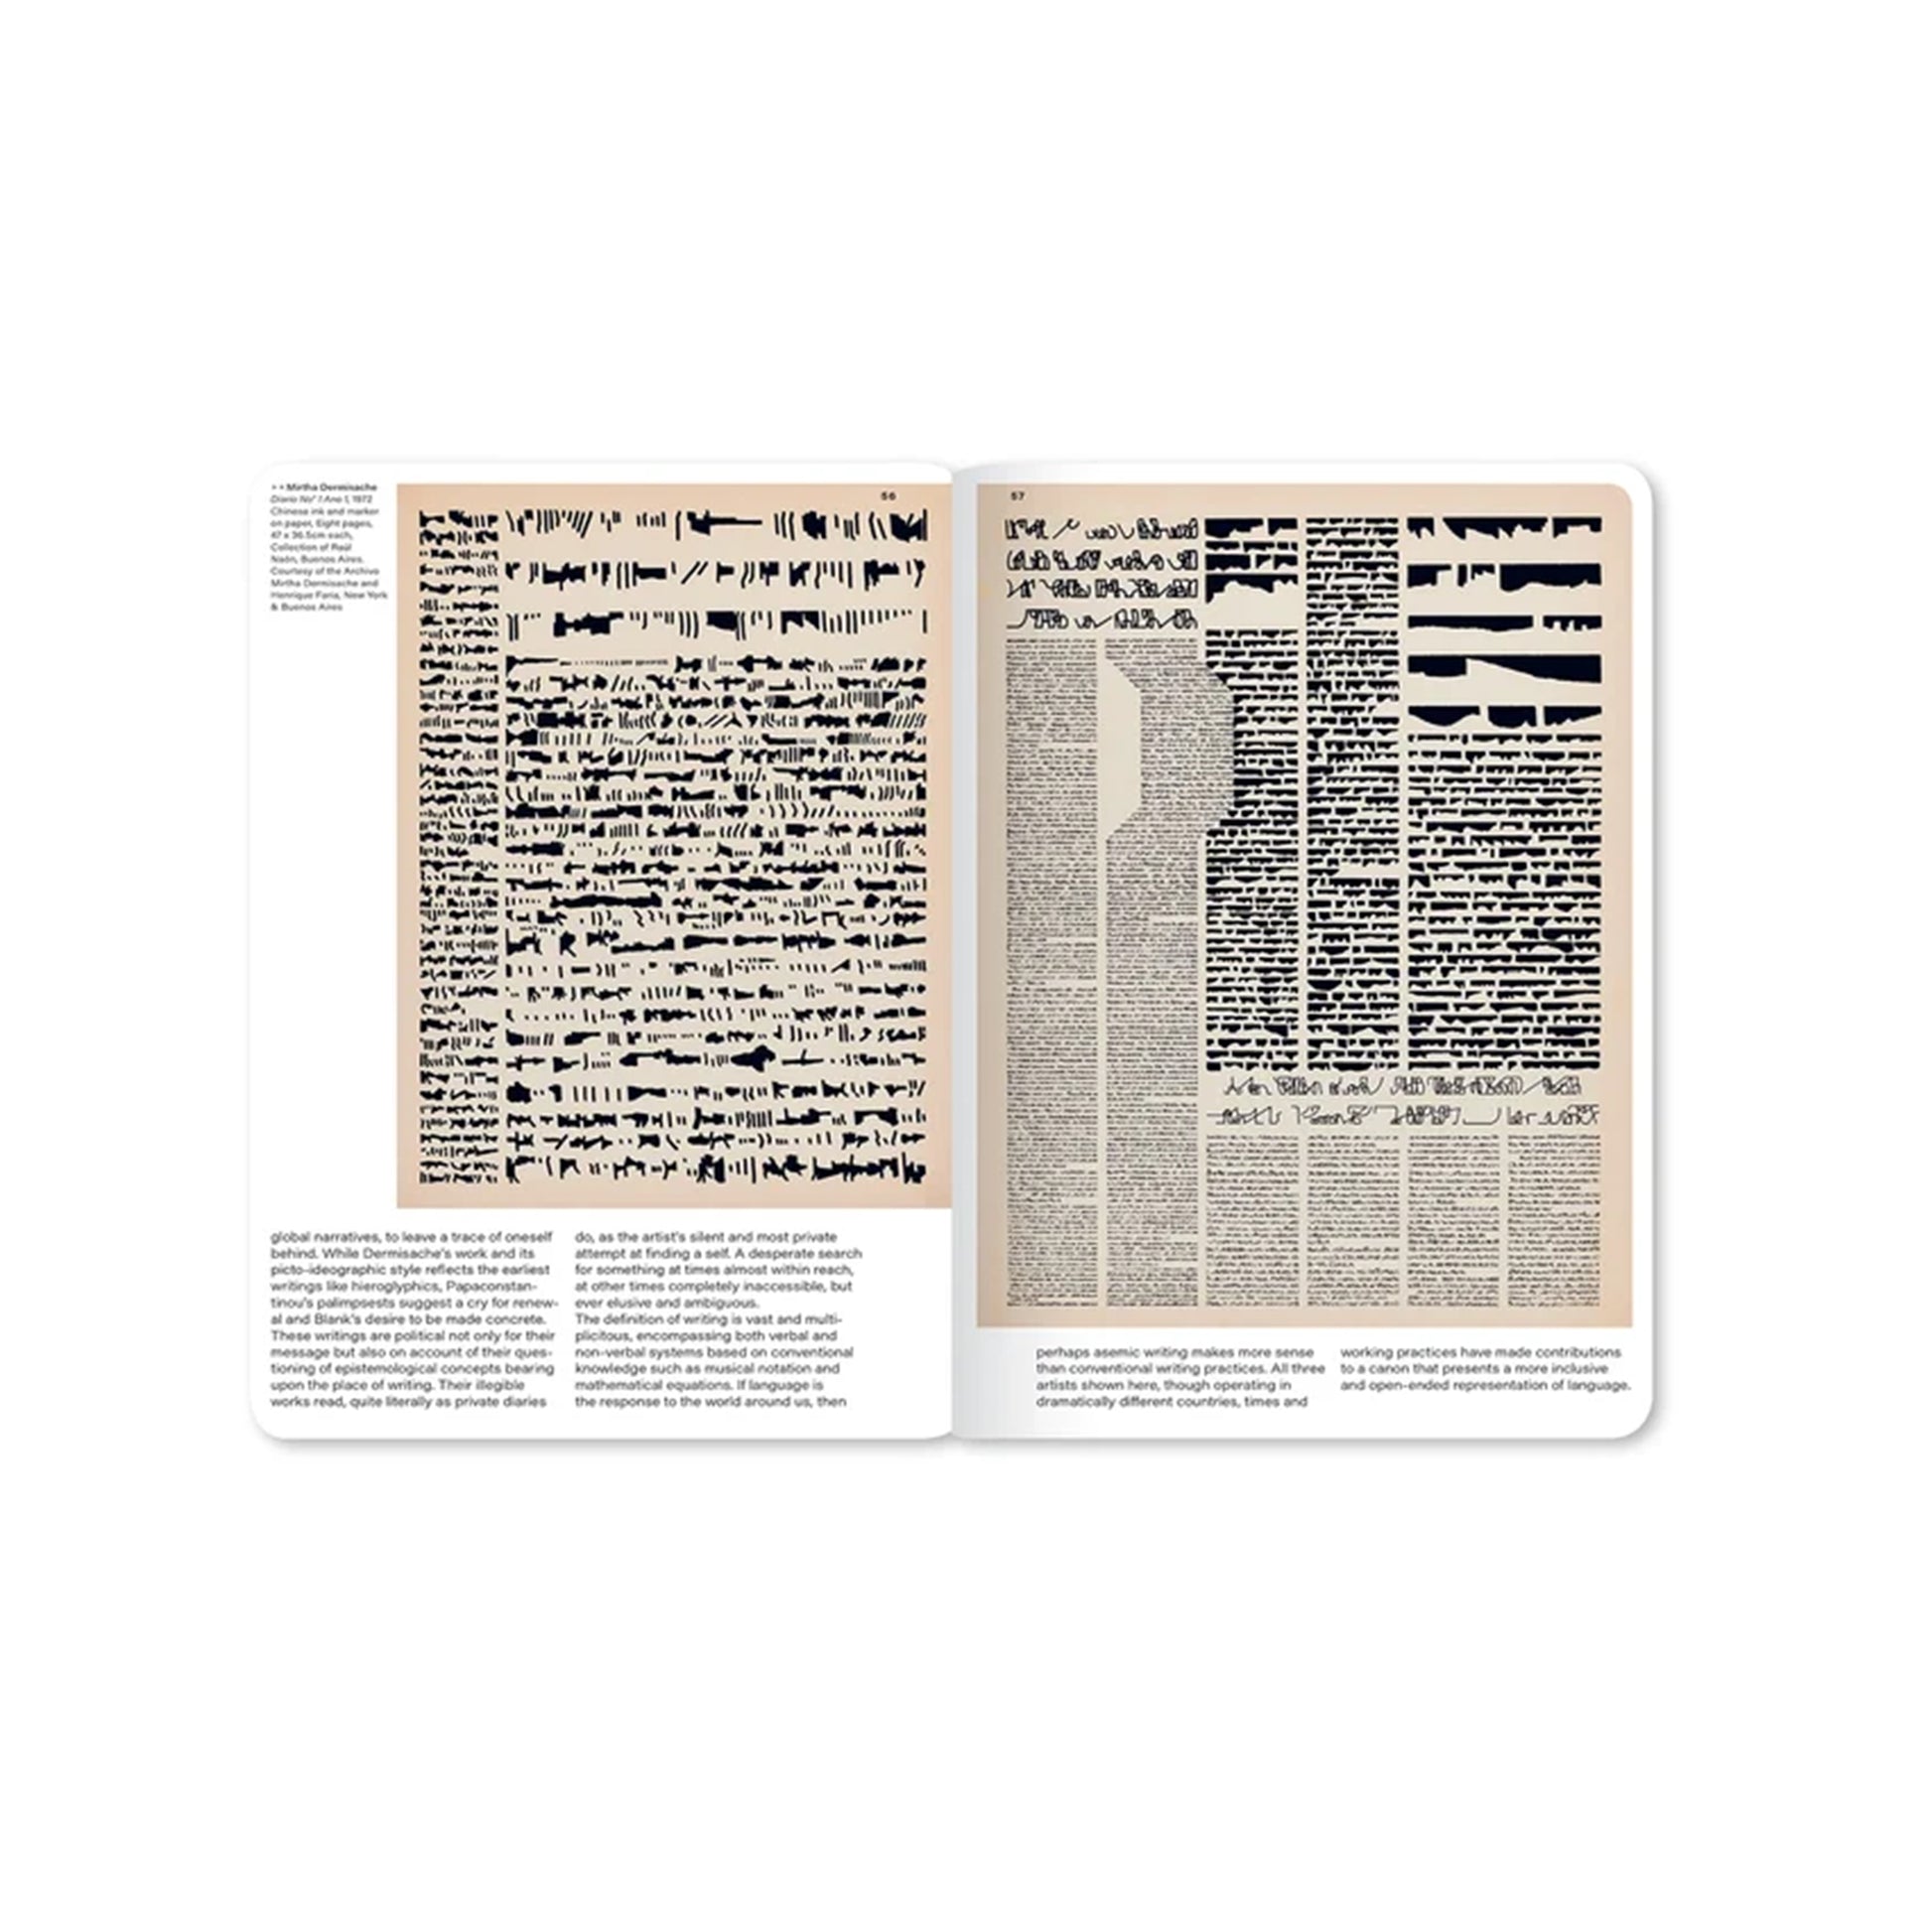 Mirtha Dermisache
Diario No° 1 Ano 1, 1972
Chinese ink and marker
on paper, Eight pages,
47 x 36.5cm each,
Collection of Raúl
Naón, Buenos Aires.
Courtesy of the Archive
Mirtha Dermisache and
Henrique Faria, New York
& Buenos Aires
56
global narratives, to leave a trace of oneself
behind. While Dermisache's work and its
picto-ideographic style reflects the earliest
writings like hieroglyphics, Papaconstan-
tinou's palimpsests suggest a cry for renew-
al and Blank's desire to be made concrete.
These writings are political not only for their
message but also on account of their ques-
tioning of epistemological concepts bearing
upon the place of writing. Their illegible
works read, quite literally as private diaries
do, as the artist's silent and most private
attempt at finding a self. A desperate search
for something at times almost within reach,
at other times completely inaccessible, but
ever elusive and ambiguous.
The definition of writing is vast and multi-
plicitous, encompassing both verbal and
non-verbal systems based on conventional
knowledge such as musical notation and
mathematical equations. If language is
the response to the world around us, then
57
perhaps asemic writing makes more sense
than conventional writing practices. All three
artists shown here, though operating in
dramatically different countries, times and
working practices have made contributions
to a canon that presents a more inclusive
and open-ended representation of language.